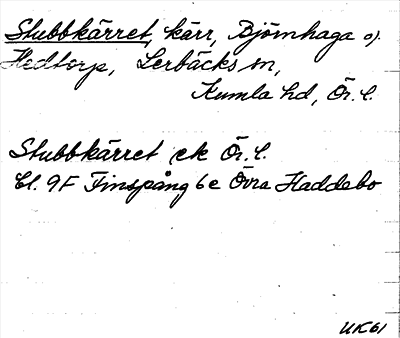 Stubbkärret, kärr, Björnhaga o).
Hedtorp, Lerbäcks sn,
Kumla hd, Ör. l.
Stubbkärret ek Ör. l.
Bl. 9F Finspång 6e Övra Haddebo
UK61